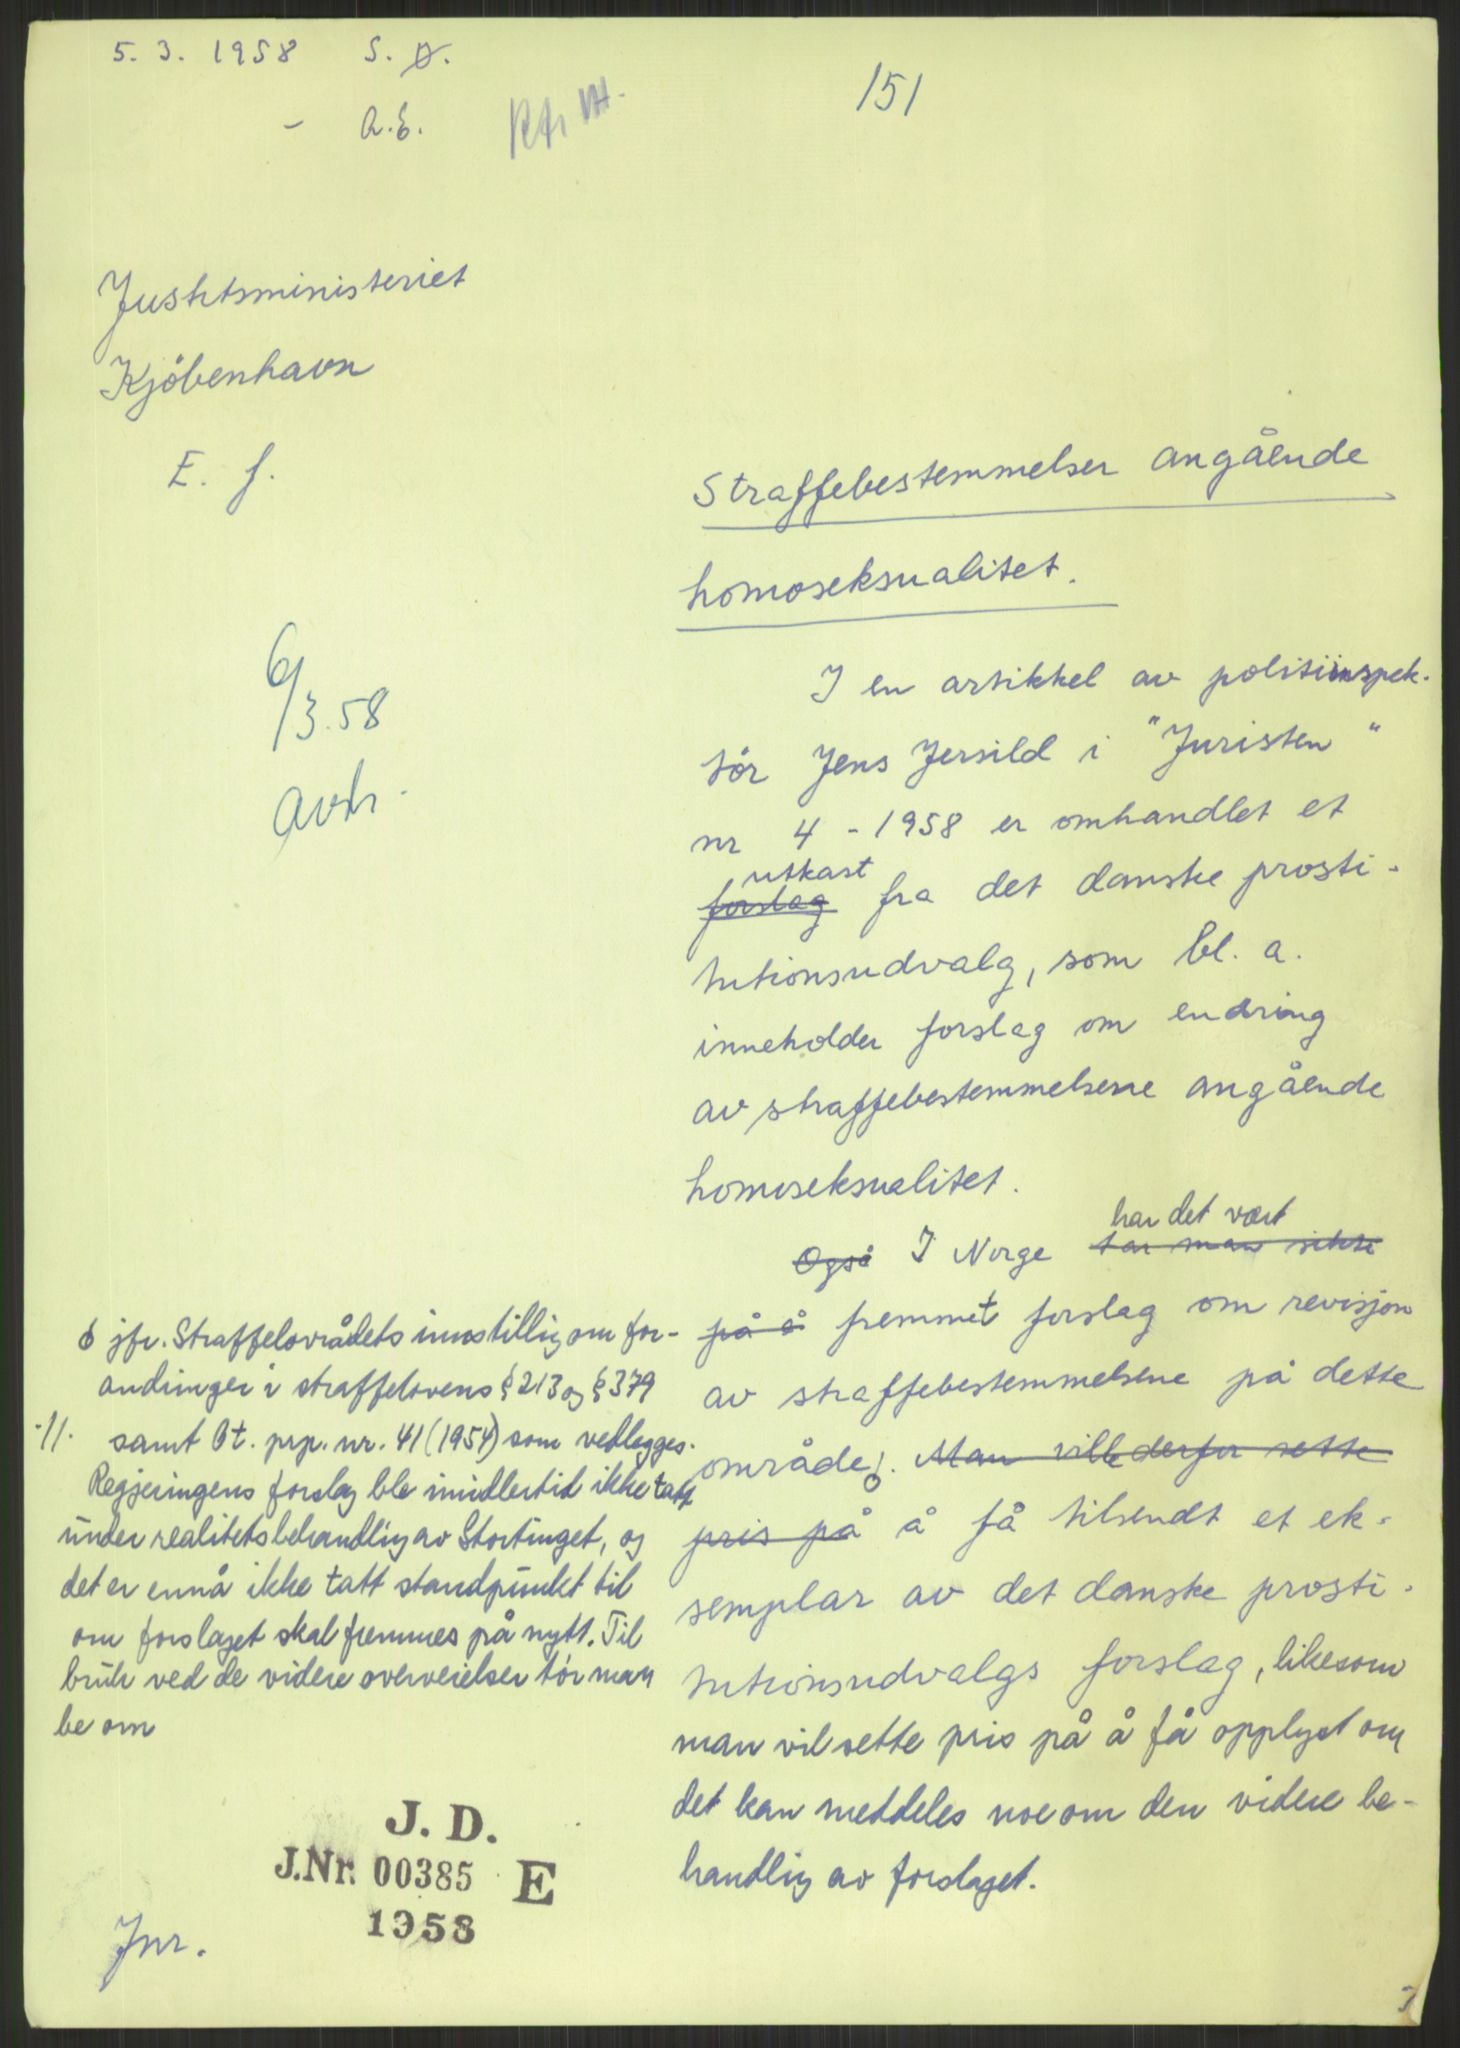 5. 3. 1958 S. D.
- A.E.
151
Justitsministeriet
Kjöbenhavn
E. f.
6/3.58
Straffebestemmelser angående
homoseksualitet.
I en artikkel av politiinspek-
tör Jens Jersild i "Juristen"
nr 4 - 1958 er omhandlet et
utkast
forslag fra det danske prosti-
tutionsudvalg, som bl. a.
inneholder forslag om endring
av straffebestemmelsene angående
homoseksualitet.
har det vært
Også I Norge tar man sikte
på å fremmet forslag om revisjon
av straffebestemmelsene på dette
område, . Man vil derfor sette
pris på å få tilsendt et ek-
semplar av det danske prosti-
tutionsudvalgs forslag, likesom
man vil sette pris på å få opplyst om
det kan meddeles noe om den videre be-
handling av forslaget.
jfr. Straffelovrådets innstilling om for-
andringer i straffelovens § 213 og § 379
·//· samt Ot. prp. nr. 41 (1954) som vedlegges.
Regjeringens forslag ble imidlertid ikke tatt
under realitetsbehandling av Stortinget, og
det er ennå ikke tatt standpunkt til
om forslaget skal fremmes på nytt. Til
bruk ved de videre overveielser tör man
be om
J. D.
J.Nr. 00385 E
1958
Jnr.